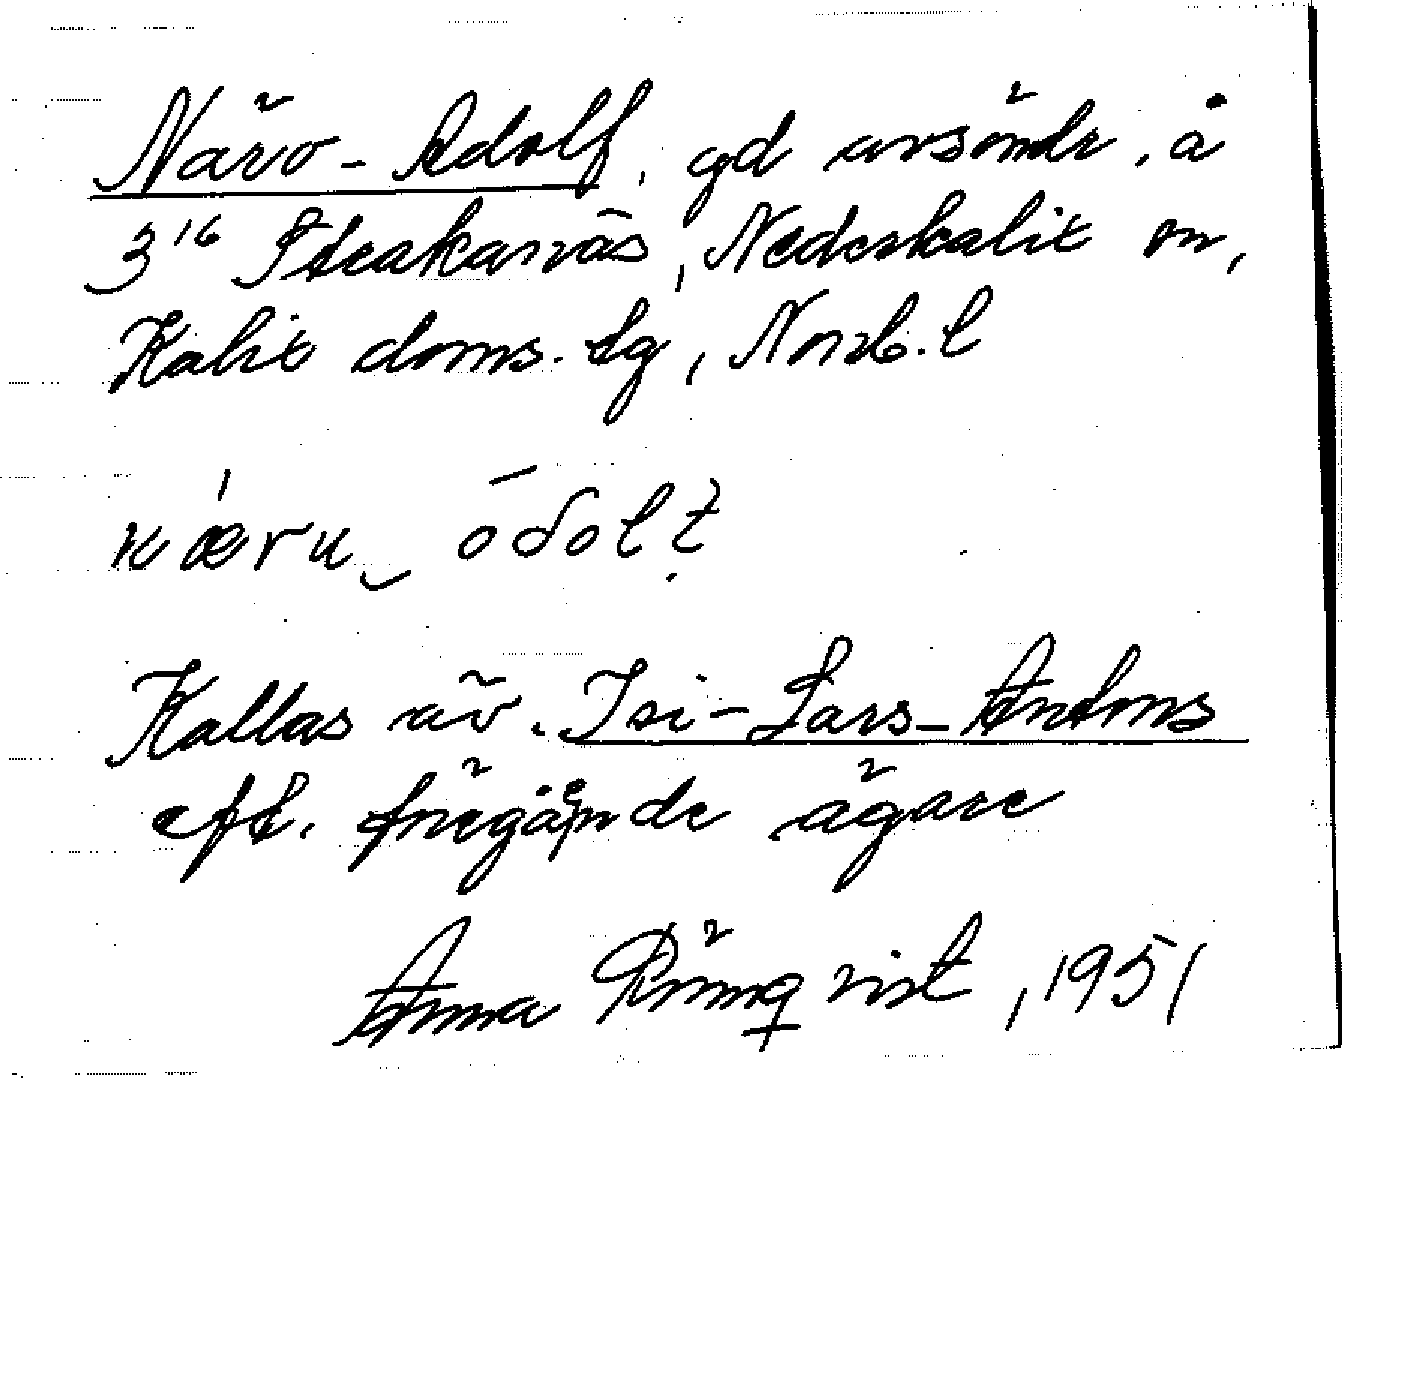 Närv-Adolf, gd avsöndr. å
3¹⁶ Storkanäs, Nederkalix sn,
Kalix doms.lg, Norrb.l
Kallas äv. Isi-Lars-Antons
eft. föregående ägare
Anna Rönnqvist, 1951